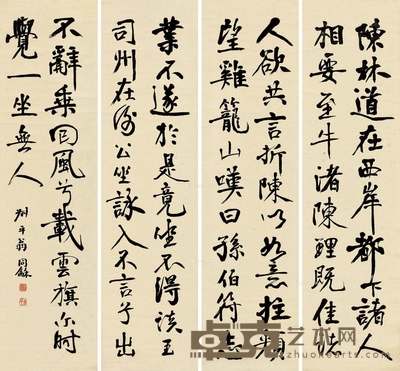 陳林道在西岸都下諸人
相要至牛渚陳鯉既佳
人欲共言折陳以如意拄頰
望雞籠山嘆曰孫伯符志
業不遂於是竟坐不得談王
司州在謝公坐詠入不言兮出
不辭乘回風兮載雲旗尔時
覺一坐無人
叔平翁同龢
卓克艺术网
www.zhuokearts.com